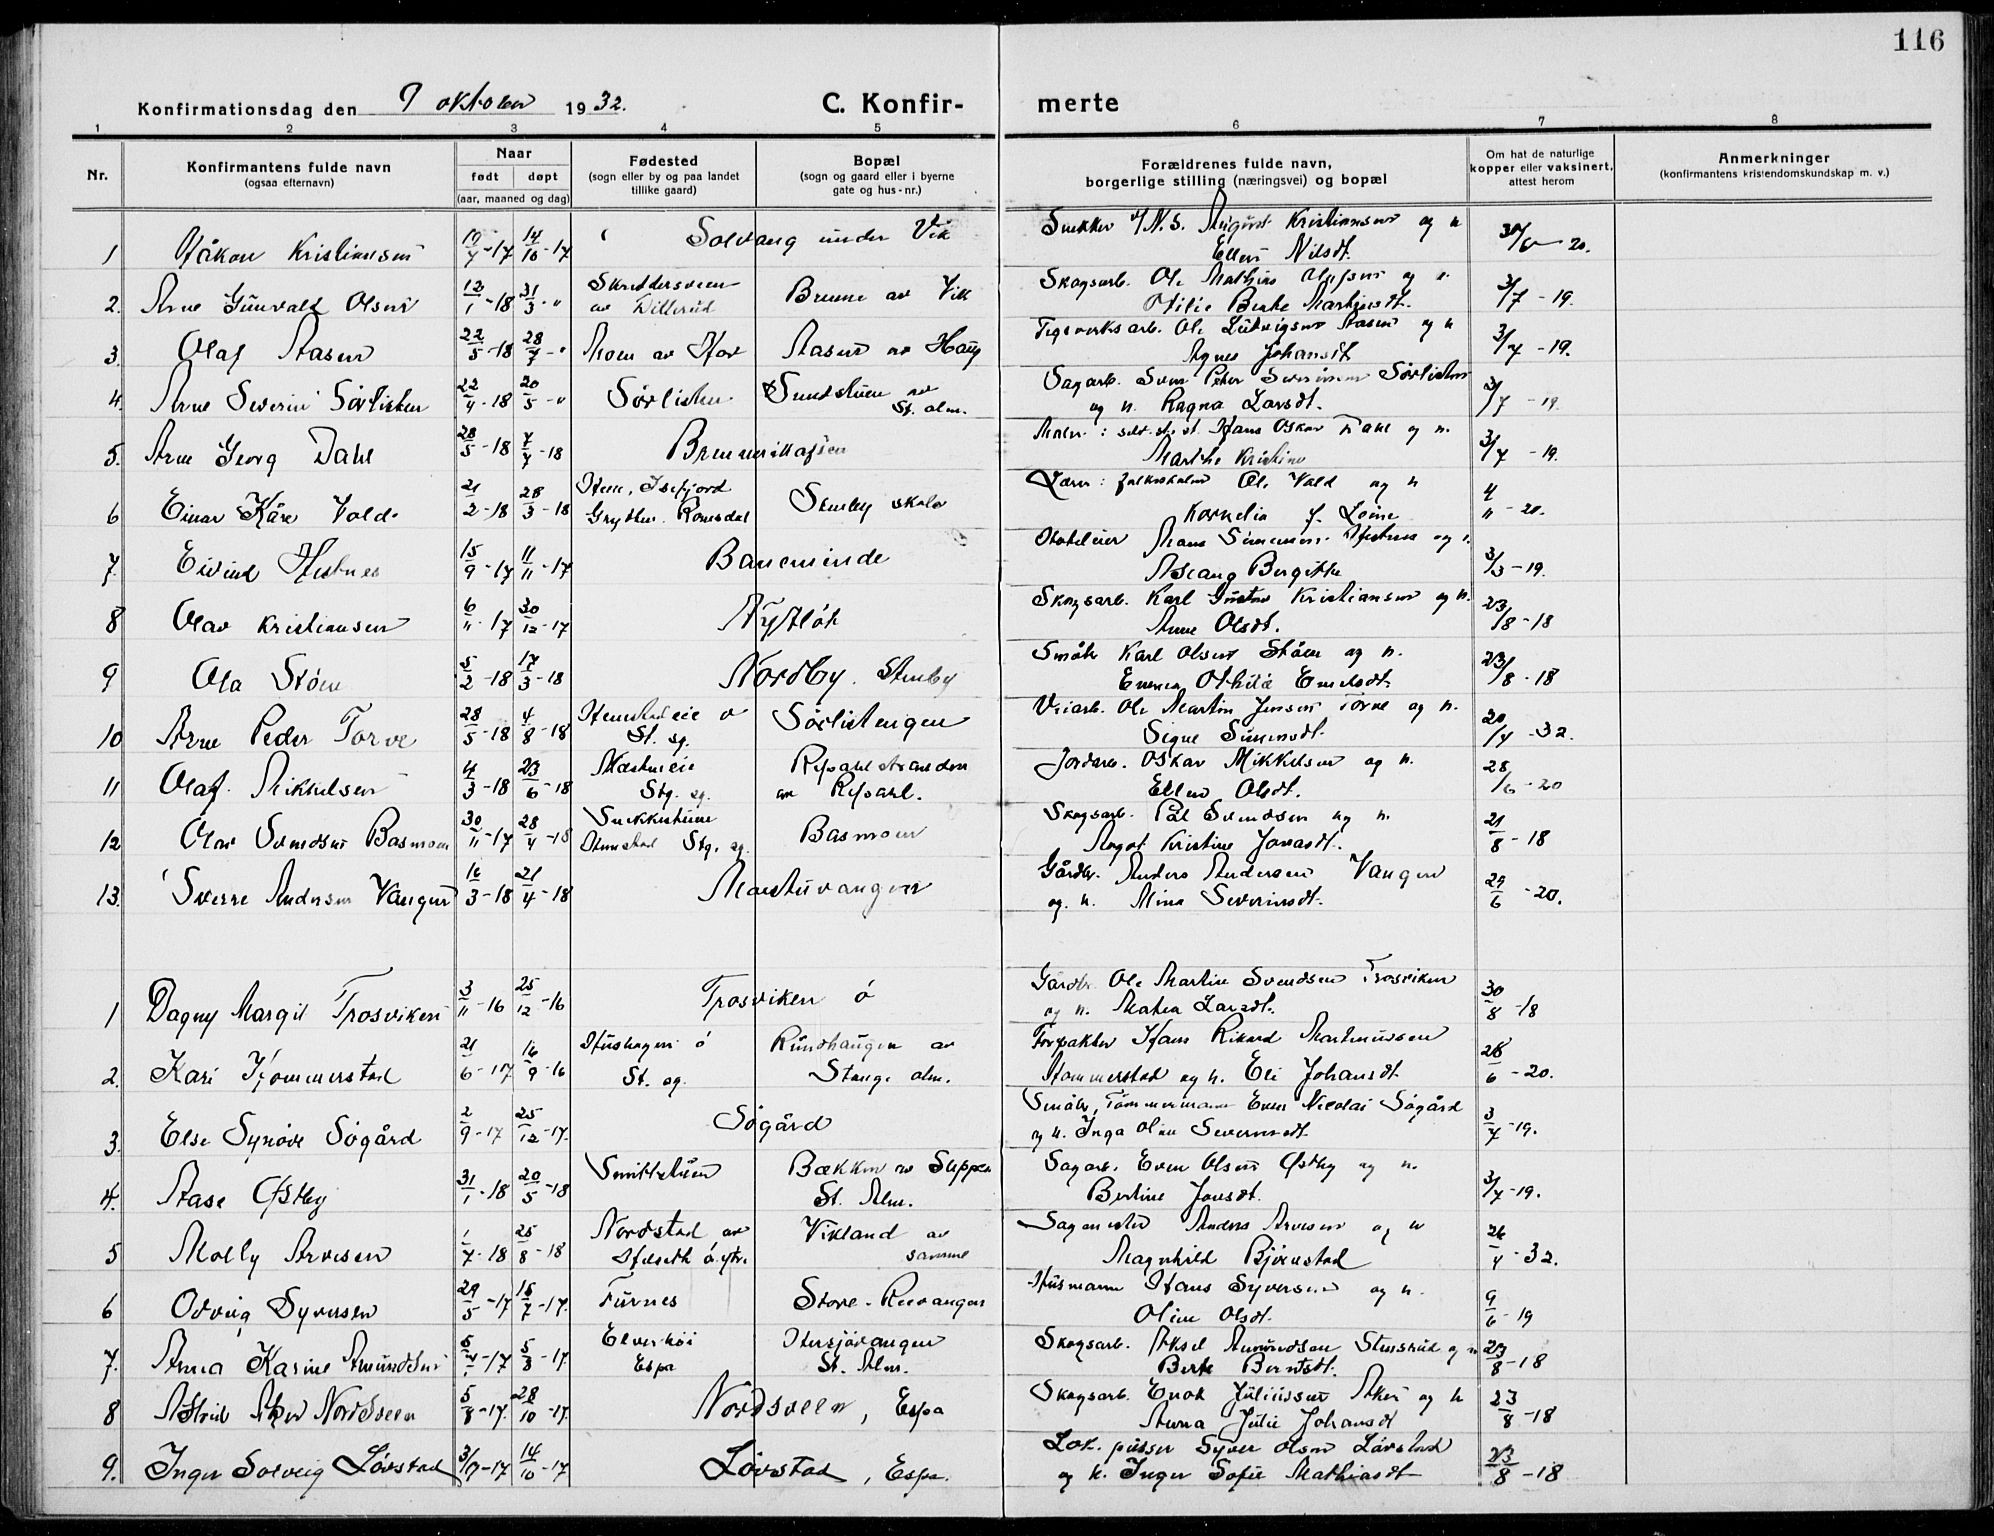 116
Konfirmationsdag den 9 oktober 1932. C. Konfir-merte
1 2 3 4 5 6 7 8
Nr.
Konfirmantens fulde navn
(ogsaa efternavn)
Naar
født døpt
(aar, maaned og dag)
Fødested
(sogn eller by og paa landet
tillike gaard)
Bopæl
(sogn og gaard eller i byerne
gate og hus-nr.)
Forældrenes fulde navn,
borgerlige stilling (næringsvei) og bopæl
Om hat de naturlige
kopper eller vaksinert,
attest herom
Anmerkninger
(konfirmantens kristendomskundskap m. v.)
1 Håkon Kristiansen 14/10-17 Solvang under Vik Snekker v/N.S. August Kristiansen og h
Ellen Nilsdt. 20.
2. Arne Gunvald Olsen 12/1-18 31/3-" Skreddersveen
av Dillerud Brenne av Vik Skogsarb. Ole Mathias Olufsen og h.
Otilie Berthe Martinsdt. 3/7-19.
3. Olaf Aasen 22/5-18 28/7-" Moen av Hov Aasen av Haug Teglverksarb. Ole Ludvigsen Aasen og h
Agnes Johansdt 3/7-19.
4. Arne Severin Sørlisten 22/4-18 20/5-" Sørlisten Sundstuen av
St. alm. Sagarb. Peter Severinsen Sørlisten
og h. Ragna Larsdt. 3/7-19.
5. Arne Georg Dahl 28/5-18 7/7-18 Hans Oskar Dahl og h.
Marthe Kristine 3/7-19.
6 Einar Kåre Vold 21/2-18 28/3-18 Hen, Isefjord
Grytten. Romsdal Stenby skole Lærer i folkeskolen Ole Vold og h
Kornelia f. Loine 4/11-20.
7. Eivind Hestnes 15/9-17 11/11-17 Baneminde Hoteleier Simensen Hestnes og h.
Aslaug Bergitte 3/3-19.
8 Olav Kristiansen 6/11-17 30/12-17 Nyfløt Skogsarb. Karl Gustav Kristiansen og h.
Anne Olsdt. 23/8-18
9 Ola Støen 5/2-18 17/3-18 Nordby. Stenby Småbr. Karl Olsen Støen og h.
Emma Othilie 23/8-18
10 Arne Peder Torve 28/5-18 4/8-18 Stenstadeie
St. sg. Sørlistengen Veiarb. Ole Martin Jensen Torve og h.
Signe Simensdt. 20/4-32.
11 Olaf Mikkelsen 4/3-18 23/6-18 Mæhlumeie
Stg. sg. av Resahl. Jordarb. Oskar Mikkelsen og h.
Ellen Olsdt. 28/6-20
12 Olav Svendsen Basmoen 30/11-17 28/4-18 Snekkestuen
Stenstad Stg. sg. Basmoen Skogsarb. Pål Svendsen og h.
Kristine 21/8-18
13. Sverre Andersen Vangen 16/3-18 21/4-18 Gårdbr. Anders Andersen Vangen
og h. Mina Severinsdt. 29/6-20.
1 Dagny Margit Trosviken 3/11-16 25/12-16 Trosviken ø Gårdbr. Ole Martin Svendsen Trosviken
og h. Mathea Larsdt. 30/8-18
2. Kari Hommerstad 21/6-17 16/9-16 Hushagen ø
St. sg. Rundhaugen av
Stange alm. Forpakter Hans Rikard Martinussen
Hommerstad og h. Eli Johansdt. 28/6-20.
3. Else Synøve Søgård 2/9-17 25/12-17. Søgård Småbr., Tømmermann Even Nicolai Søgård
og h. Inga Oline Severinsdt. 3/7-19.
4. Aase Østby 31/1-18 20/5-18 Smittstuen Bækken av
St. Alm. Sagarb. Even Olsen Østby og h.
Bertine Jonsdt. 3/7-19.
5 Molly Arvesen 1/7-18 25/8-18 Nordstad av
Helseth ø. ytre. Vikland av
samme Sagmester Anders Arvesen og h
Magnhild Bjørnstad 26/4-32.
6 Oddvig Syversen 29/5-17 15/7-17. Furnes Store-Revangen Husmann Hans Syversen og h.
Oline Olsdt. 9/6-19
7. Anna Karine Amundsen 5/3-17. Elverhøi
Espa Hersjøvangen
St. Alm. Skogsarb. Aksel Amundsen Stensrud og h
Berte Berntsdt. 23/8-18
8 Astrid Aker Nordsveen 5/8-17. 28/10-17. Nordsveen, Espa Skogsarb. Enok Juliussen Aker og h
Anna Julie Johansdt 23/8-18
9. Inger Solveig Løvstad 14/10-17 Løvstad, Espa. Lok. pusser Syver Olsen Løvstad
og h. Inger Sofie Mathiasdt 23/8-18